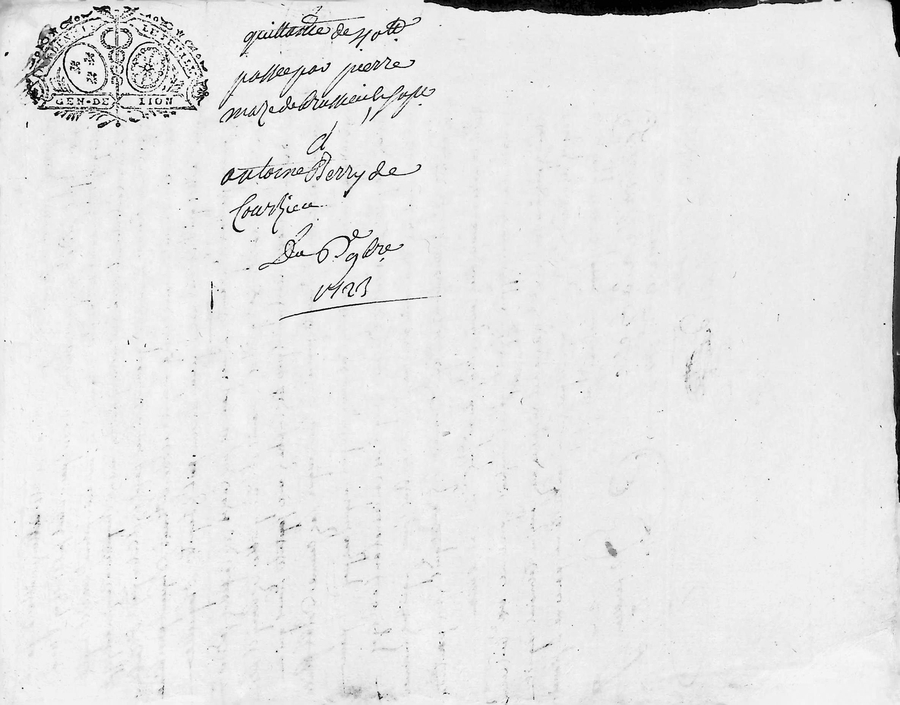 GEN·DE LION
quittance de 40tt
passée par pierre
maze de Brussieu
a
antoine Berry de
Courzieu
Du 6e 9bre
1723